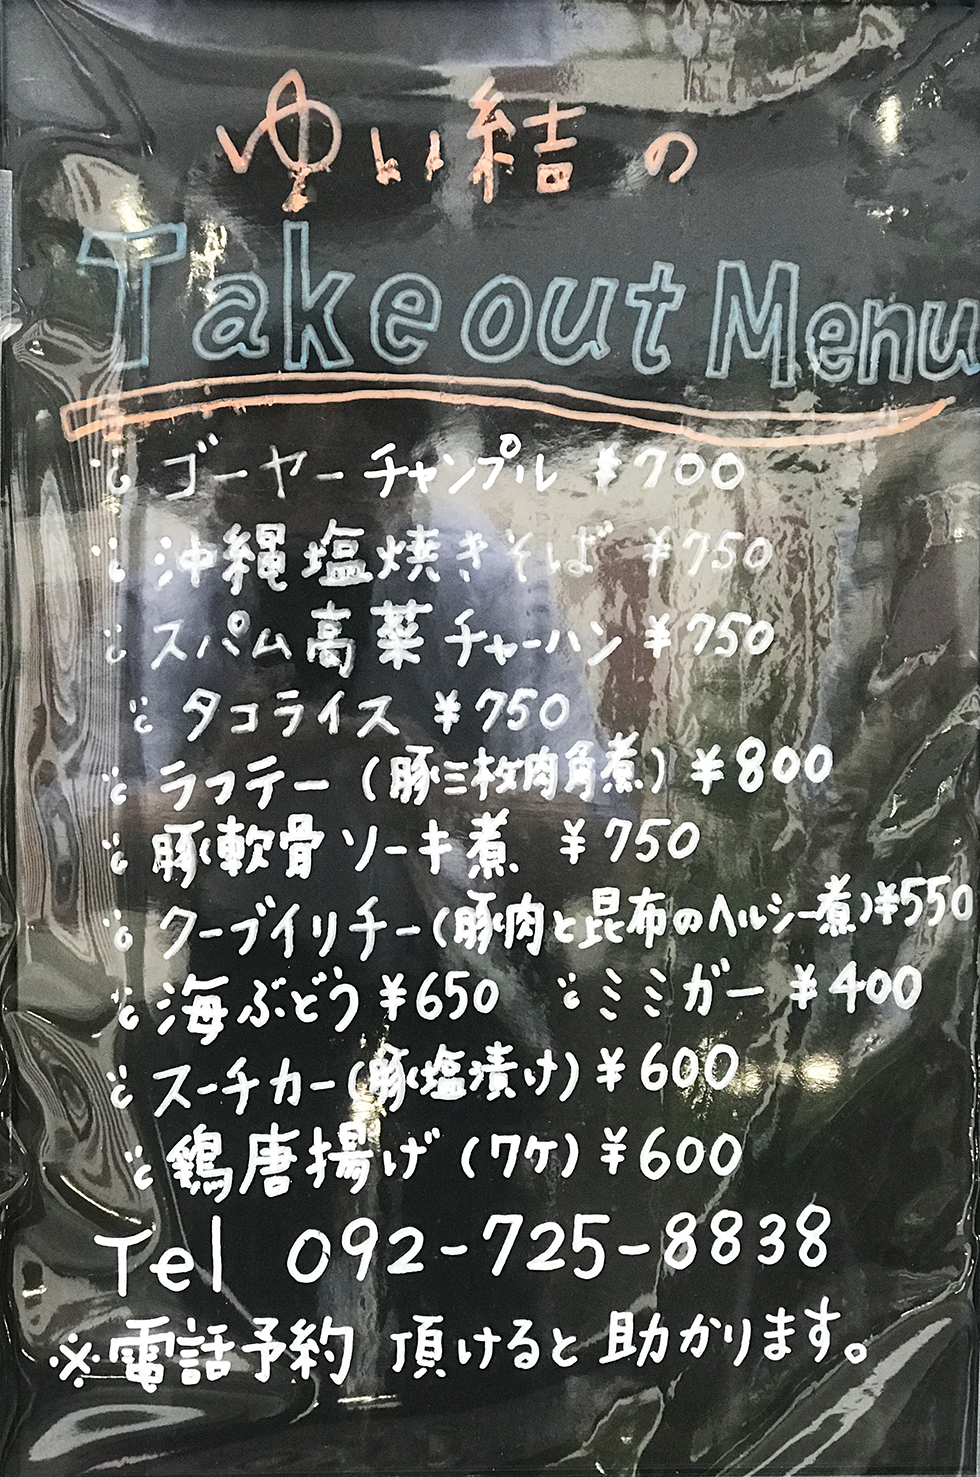 ゆい結の
Takeout Menu
ゴーヤーチャンプル ¥700
沖縄塩焼きそば ¥750
スパム高菜チャーハン ¥750
タコライス ¥750
ラフテー(豚三枚肉角煮) ¥800
豚軟骨ソーキ煮 ¥750
クーブイリチー(豚肉と昆布のヘルシー煮)¥550
海ぶどう ¥650 ミミガー ¥400
スーチカー(豚塩漬け) ¥600
鶏唐揚げ (7ケ) ¥600
Tel 092-725-8838
※電話予約 頂けると助かります。